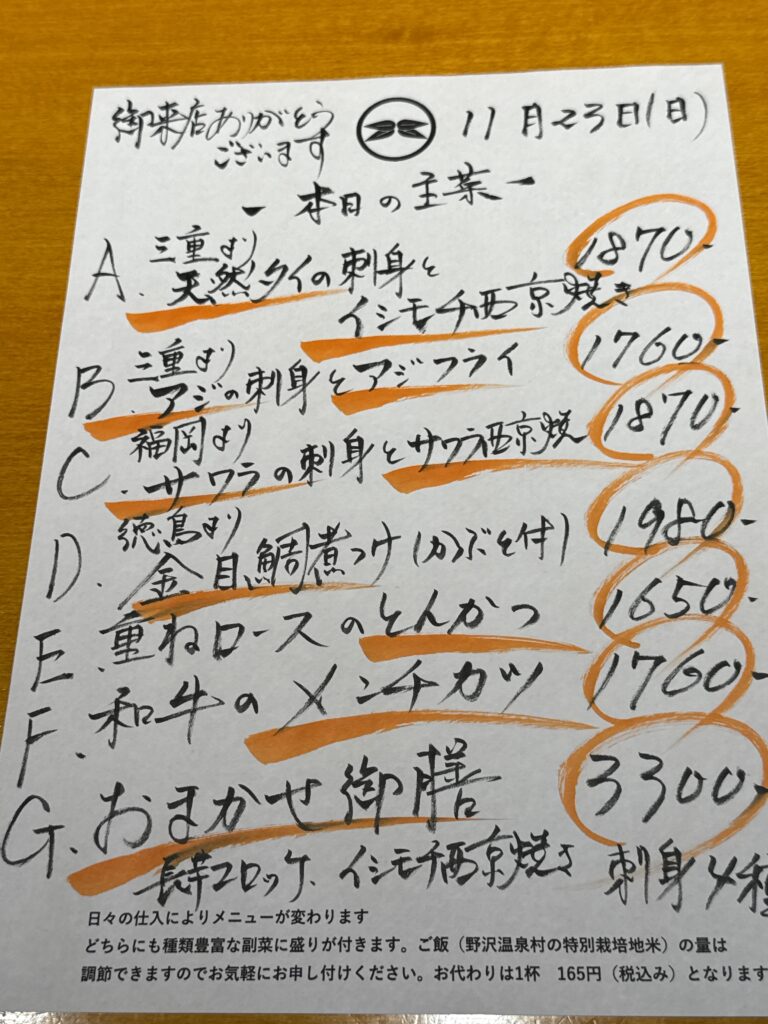 御来店ありがとう
ございます
11月23日(日)
- 本日の主菜 -
A. 三重より
天然タイの刺身と
イシモチ西京焼き 1870-
B. 三重より
アジの刺身とアジフライ 1760-
C. 福岡より
サワラの刺身とサワラ西京焼 1870-
D. 徳島より
金目鯛煮つけ(かぶと付) 1980-
E. 重ねロースのとんかつ 1650-
F. 和牛のメンチカツ 1760-
G. おまかせ御膳 3300-
長芋コロッケ、イシモチ西京焼き 刺身4種
日々の仕入によりメニューが変わります
どちらにも種類豊富な副菜に盛りが付きます。ご飯(野沢温泉村の特別栽培地米)の量は
調節できますのでお気軽にお申し付けください。お代わりは1杯 165円(税込み)となります